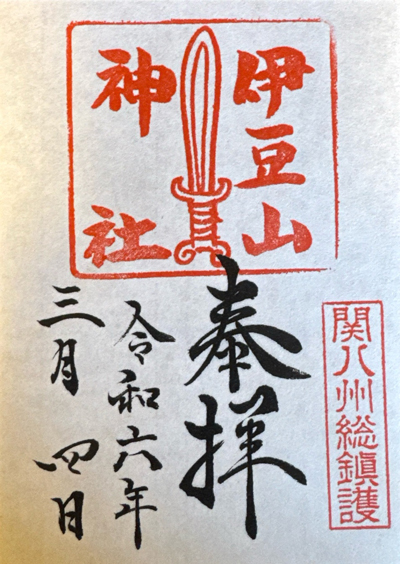 伊豆山
神社
関八州総鎮護
奉拝
令和六年
三月四日